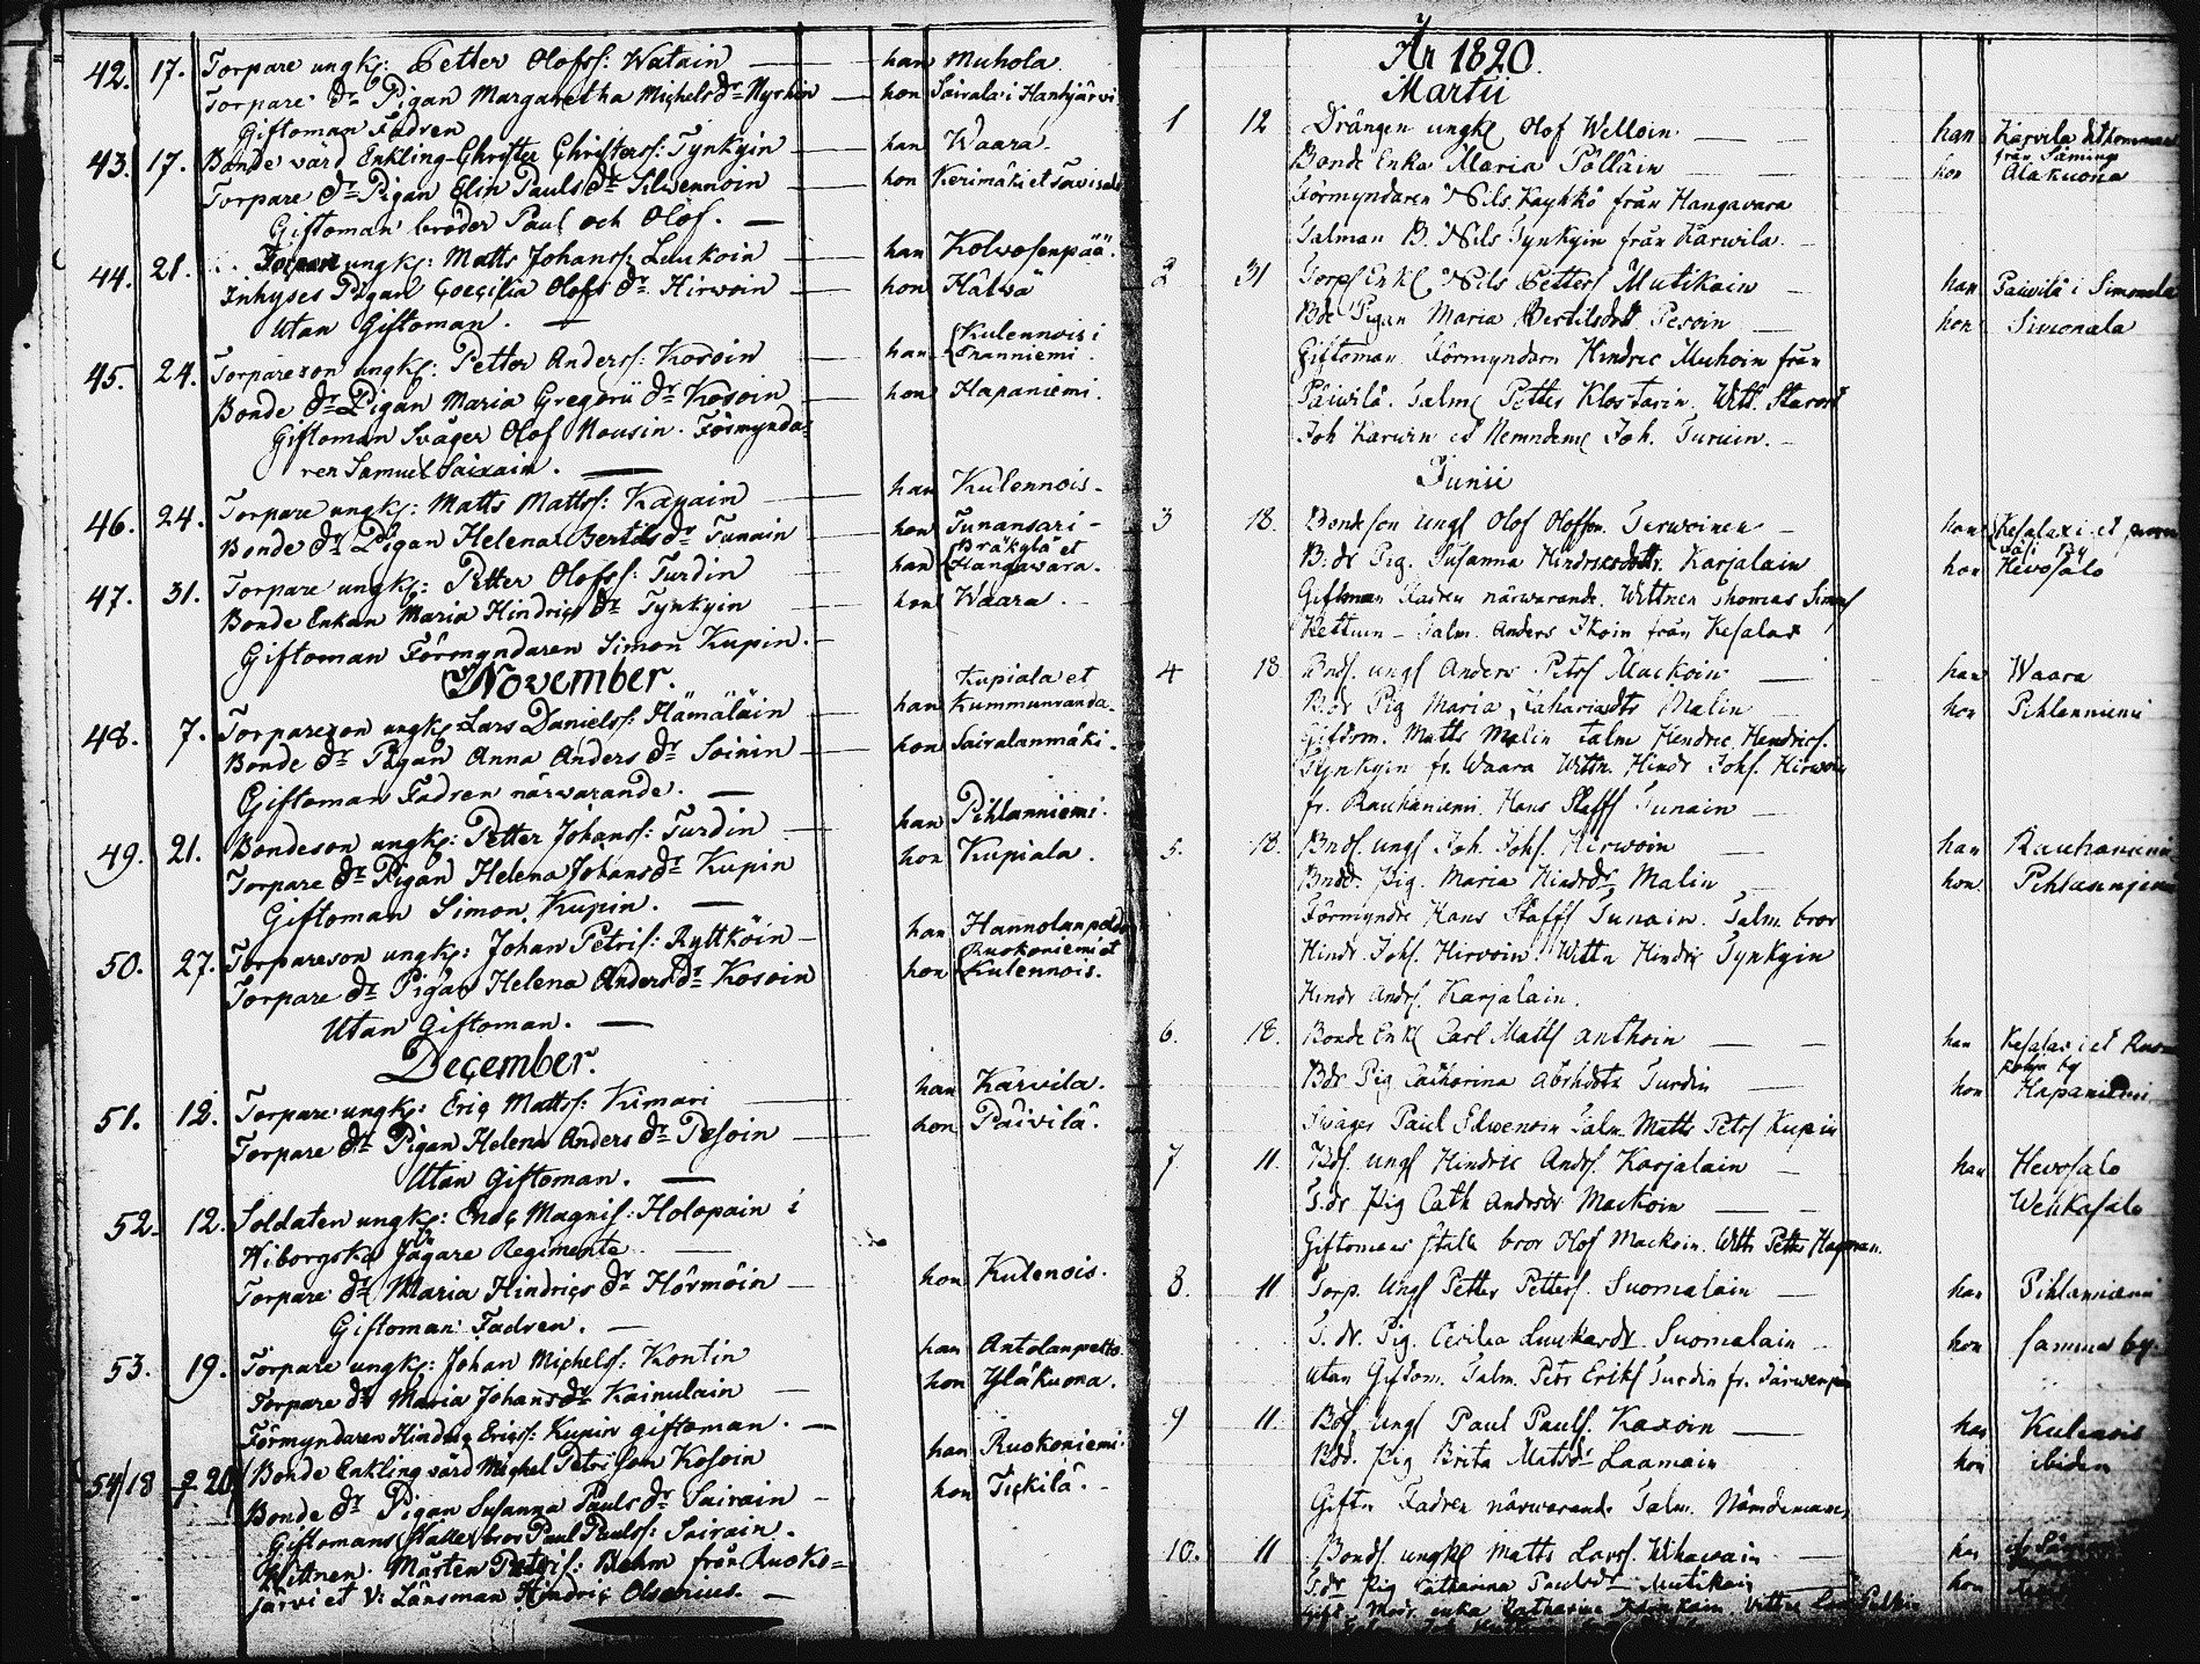 42. 17. Torpare ungk: Petter Olofss: Watain — han Muhola
Torpare dr Pigan Margaretha Michelsdr Nyrhin — hon Sairala i Hankjärvi
Giftoman Fadren
43. 17. Bonde värd Enkling Christer Christerss: Tynkyin — han Waara.
Torpare dr Pigan Elin Pauls dr Silwennoin — hon Kerimäki et
Giftoman bröder Paul och Olof. —
44. 21. Torpare ungk: Matts Johanss: Leukoin — han Kolwosenpää.
Inhyses Pigan Coecilia Olofs dr Hirwoin — hon Hälwä
Utan Giftoman. —
45. 24. Torpareson ungk: Petter Anderss: Kosoin — han {Kulennois i Tranniemi.
Bonde dr Pigan Maria Gregorii dr Kosoin — hon Hapaniemi.
Giftoman Svåger Olof Nousin. Förmynda=
ren Samuel Saixain. —
46. 24. Torpare ungk: Matts Mattss: Kapain — han Kulennois.
Bonde dr Pigan Helena Bertils dr Tunain — hon Tunansari
47. 31. Torpare ungk: Petter Olofss: Turdin — han {Bräkylä et Hangawara.
Bonde Enkan Maria Hindrics dr Tynkyin — hon Waara.
Giftoman Förmyndaren Simon Kupin. —
November.
48. 7. Torpareson ungk: Lars Danielss: Hämäläin — han Kupiala et Kummunranda.
Bonde dr Pigan Anna Anders dr Soinin — hon Sairalanmäki.
Giftoman Fadren närwarande. —
49. 21. Bondeson ungk: Petter Johanss: Turdin — han Pihlanniemi.
Torpare dr Pigan Helena Johans dr Kupin hon Kupiala.
Giftoman Simon Kupin. —
50. 27. Torpareson ungk: Johan Petris: Ryttköin — han Hannolanpeldo
Torpare dr Pigan Helena Anders dr Kosoin hon {Ruokoniemi et Kulennois.
Utan Giftoman. —
December.
51. 12. Torpare ungk: Eric Mattss: Kimari — han Karvila.
Torpare dr Pigan Helena Anders dr Pesoin — hon Päivilä.
Utan Giftoman. —
52. 12. Soldaten ungk: Enoc Magnis: Holopain i
Wiborgska Jägare Regimente —
Torpare dr Maria Hindrics dr Hörmöin — hon Kulenois.
Giftoman Fadren. —
53. 19. Torpare ungk: Johan Michelss: Kontin han Antolanpelto.
Torpare dr Maria Johans dr Kainulain — hon Yläkuona.
Förmyndaren Hindric Ericss: Kupin giftoman. —
54/18 20 Bonde Enkling värd Michel Petri son Kosoin han Ruokoniemi.
Bonde dr Pigan Susanna Pauls dr Sairain — hon Tickilä.
Giftomans Ställe bror Paul Paulss: Sairain.
Wittnen. Mårten Petris: Behm från Ruoko=
järvi et V: Länsman Hindric Olsenius. —
År 1820.
Martii
1 12 Drängen ungk Olof Welloin — han Karvila
från Säminge
Bonde Enka Maria Pölläin — hon Alakuona
Förmyndaren Nils Kaykkö från Hangavara
Talman B. Nils Tynkyin från Karwila.
2 31 Torp Enkl Nils Petters Mutikain — han Paivilä i Simonala
Bde Pigan Maria Bertilsdott Pesoin — hon Simonala
Giftoman Förmyndarn Hindric Muhoin från
Päiwilä. Talm Petter Klostarin. Witt. Starost
Joh Karwin et Nemndem Joh. Turuin. —
Junii
3 18. Bondeson Ungk Olof Olofson Terwoinen — han Kesalax i et
by
B: dr Pig. Susanna Hindricsdottr. Karjalain hon Hevosalo
Giftman Fadren närwarande. Wittnen Thomas
Kettuin — Talm. Anders Ikoin från Kesalax
4 18 Bnds. ungk Anders Petrs Mackoin — han Waara
B. dr Pig Maria Zahariedtr Malin — hon Pihlanniemi
Giftom. Matts Malin Talm Hendric Hendrics.
Tynkyin fr. Waara Wittn. Hindr Johs. Hirwoin
fr. Rauhaniemi. Hans Staffs Tunain —
5. 18. Bnds. ungk Joh. Johs. Hirwoin — han Rauhaniemi
Bndd. Pig. Maria Hindrdr Malin — hon
Förmyndre Hans Staffs Tunain. Talm. bror
Hindr. Johs. Hirvoin. Wittn Hindric Tynkyin
Hindr Andrs. Karjalain.
6. 18. Bonde Enkl Carl Matts Anthoin — han Kesalax i et
by
Bdr Pig Catharina Turdin — hon Hapaniemi
Svåger Paul Silwenoin Talm. Matts Petrs Kupin
7 11. Bds. ungk Hindric Andrs. Karjalain — han Hevosalo
T. dr Pig Cath Andersdr Mackoin — Wehkasalo
Giftomans ställe bror Olof Mackoin. Wittn Petter Hagman.
8. 11 Torp. Ungk Petter Petters. Suomalain — han Pihlaniemi
T. dr. Pig. Cecilia Suomalain — hon samma by.
Utan Giftom. Talm. Petr Eriks Turdin fr.
9 11. Bds. Ungk Paul Pauls. Kaxoin — han Kulenois
Bdd. Pig Brita Matsdr Laamain hon ibidem
Giftn Fadren närwarande Talm. Nämdeman
10. 11 Bonds. ungk Matts Larss. Wihawain — han
T. dr Pig Catharina Paulsdr Mutikain — hon
Gift. Modr. enka Catharina